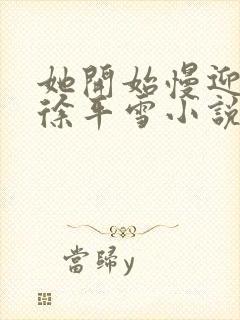 她開始慢迎
徐平雪小說
當歸y